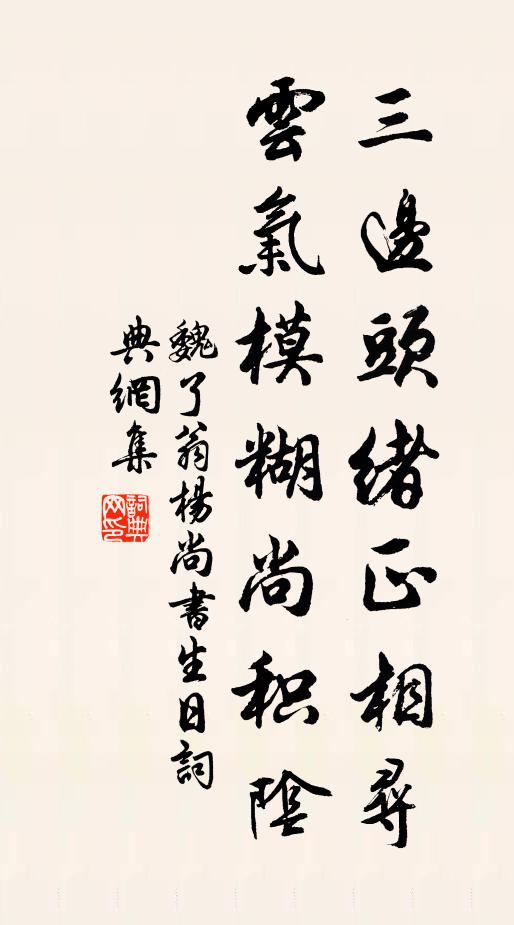 三邊頭緒正相尋
雲氣模糊尚积陰
魏了翁楊尚書生日詞
典網集
詞典网印